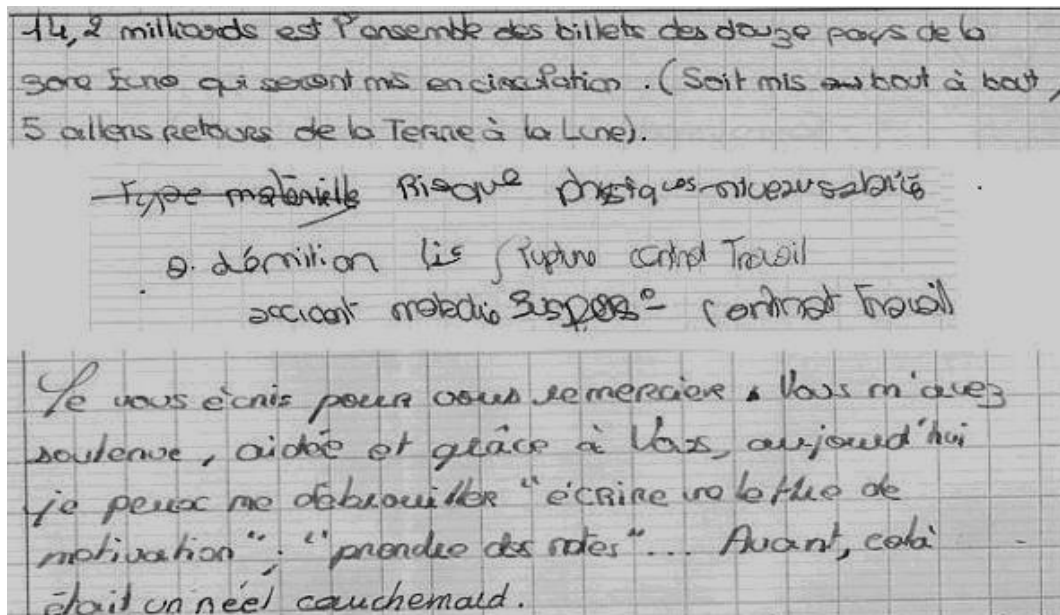 14,2 milliards est l'ensemble des billets des douze pays de la
zone Euro qui seront mis en circulation. (Soit mis bout à bout,
5 allens retours de la Terre à la Lune).
Risque physiques niveau sabrité
démition lic rupture contrat Travail
accicant maladie suspens° contrat Travail
Je vous écris pour vous remercier. Vous m'avez
soutenue, aidée et grâce à Vous, aujourd'hui
je peux me débrouiller "écrire une lettre de
motivation", "prendre des notes"... Avant, cela
était un réel cauchemald.